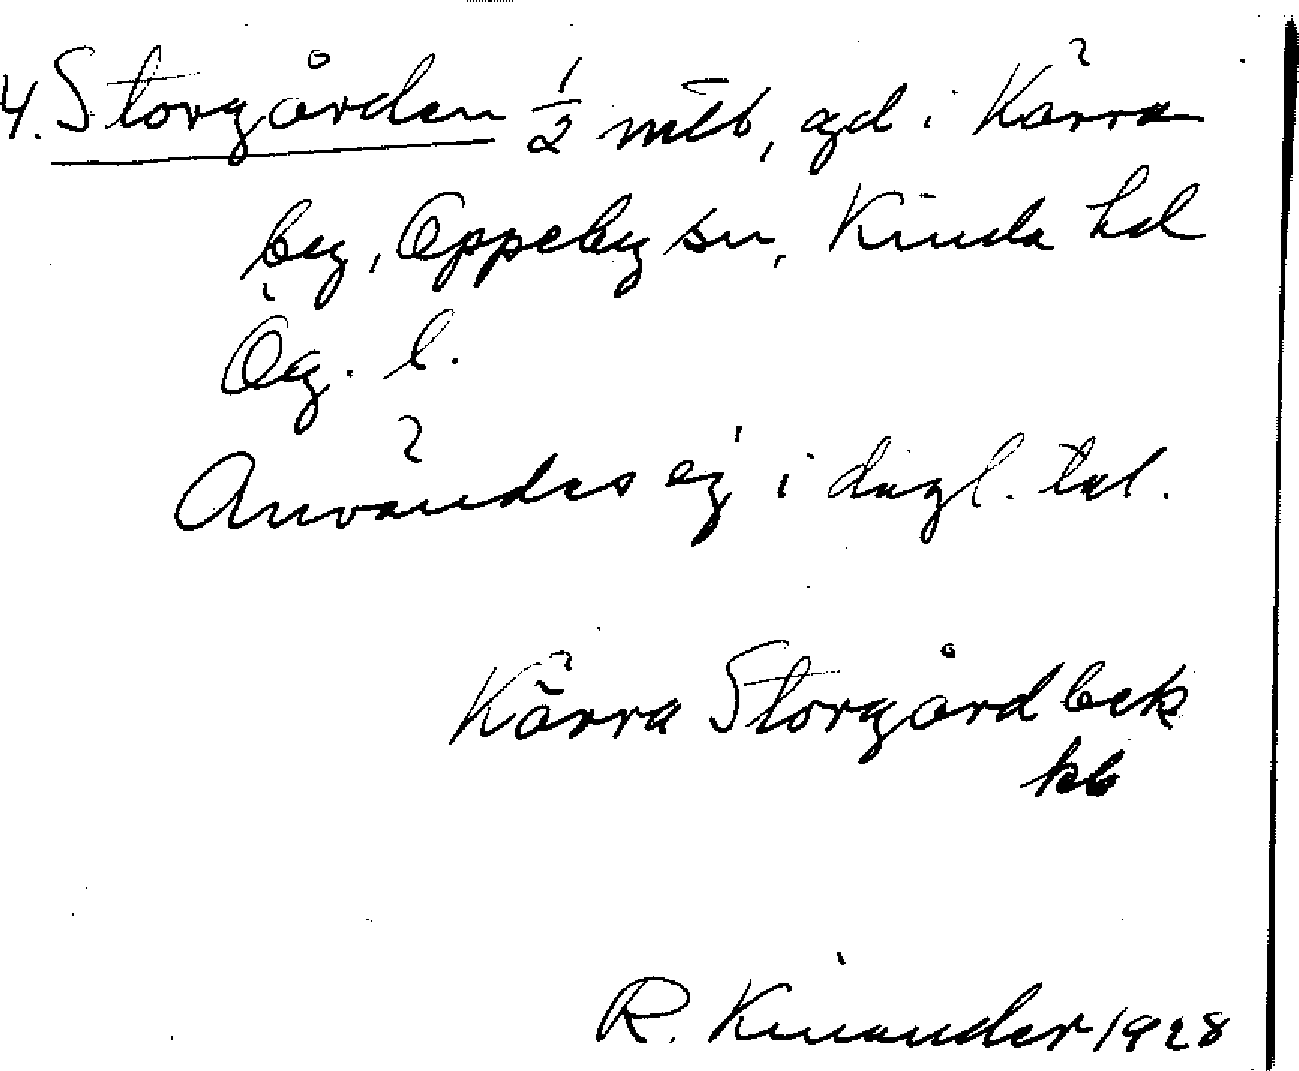 4. Storgården 1/2 mtl, gd i Kärra
by, Oppeby sn, Kinda hd
Ög. l.
Användes ej i dagl. tal.
Kärra Storgård bek
kb
R. Kinander 1928